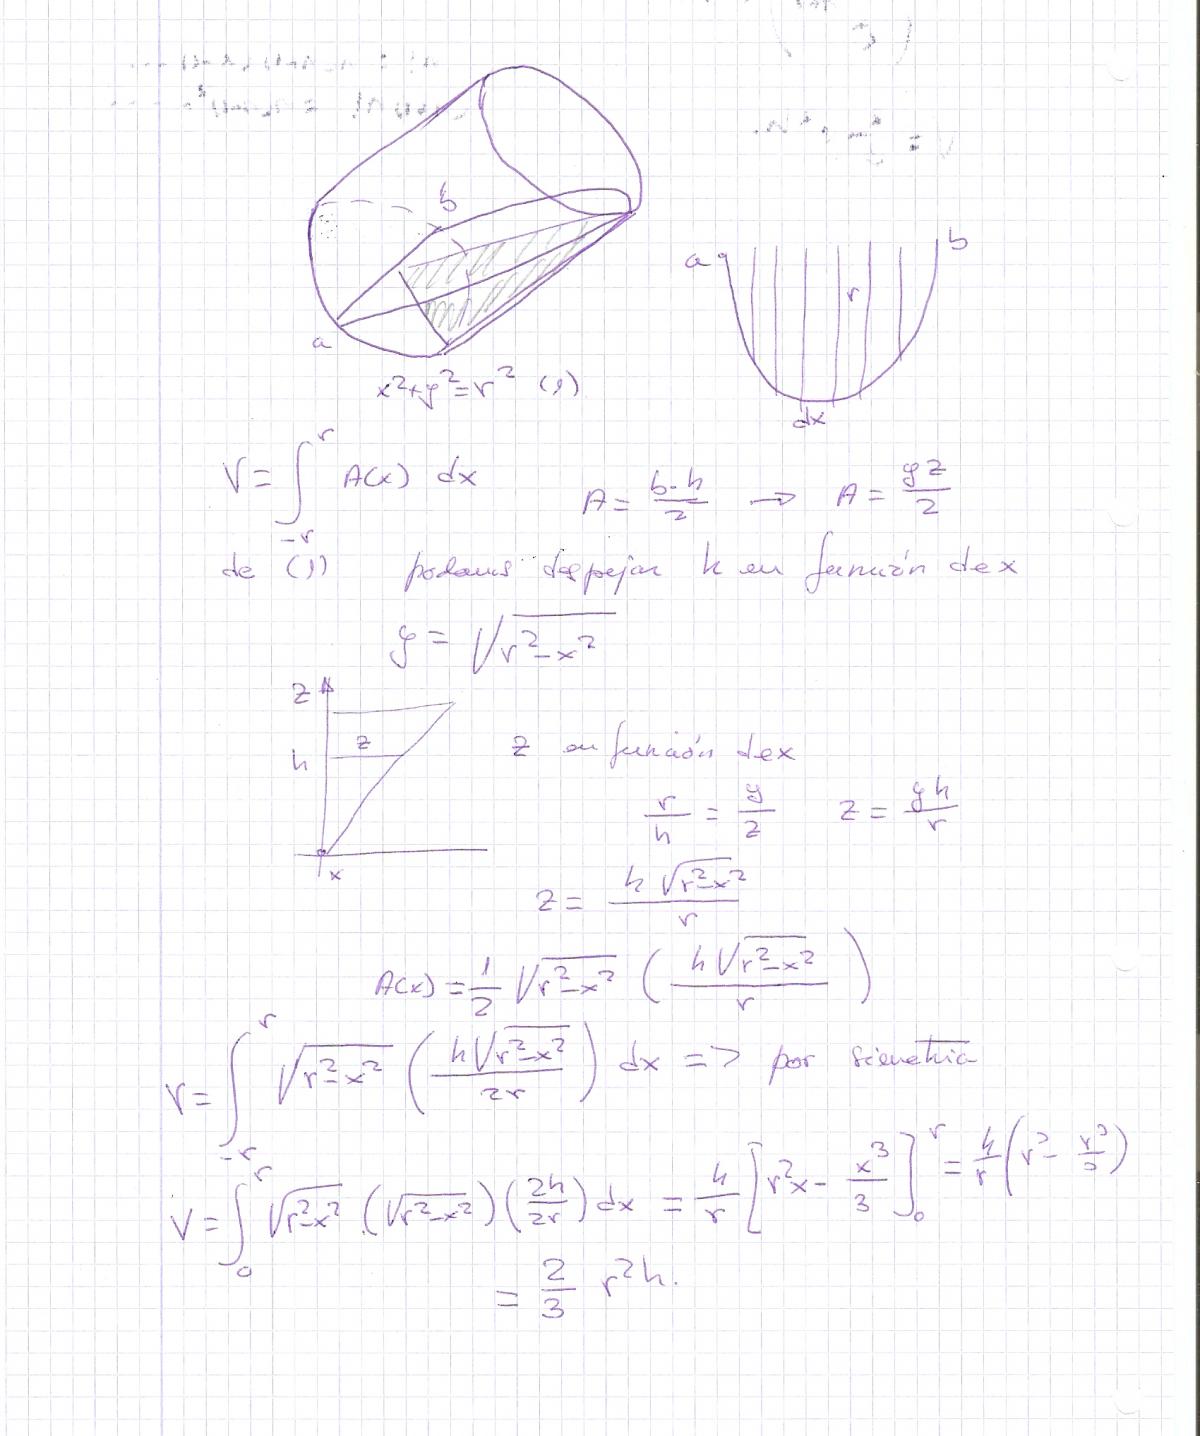 b
a
x²+y²=r² (1)
a b
r
dx
V = ∫_{-r}^{r} A(x) dx A = b·h/2 → A = yz/2
de (1) podemos despejar h en función de x
y = √(r²-x²)
z
h z
x
z en función de x
r/h = y/z z = yh/r
z = h√(r²-x²)/r
A(x) = 1/2 √(r²-x²) (h√(r²-x²)/r)
V = ∫_{-r}^{r} √(r²-x²) (h√(r²-x²)/2r) dx => por simetria
V = ∫_{0}^{r} √(r²-x²) · (√(r²-x²)) (2h/2r) dx = h/r [r²x - x³/3]_{0}^{r} = h/r (r³ - r³/3)
= 2/3 r²h.